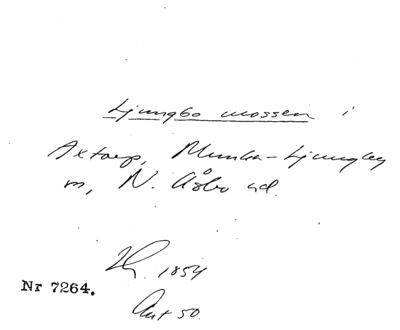 Ljungbo mossen i
Axtorp, Munka-Ljungby
m, N. Åsbo hd.
1854
Nr 7264.
Akt 50.